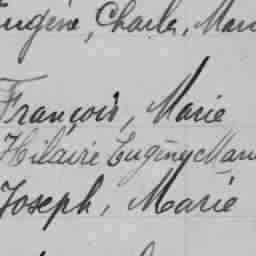 Eugène, Charles, Mari
François, Marie
Hilaire Eugény Mari
Joseph, Marie